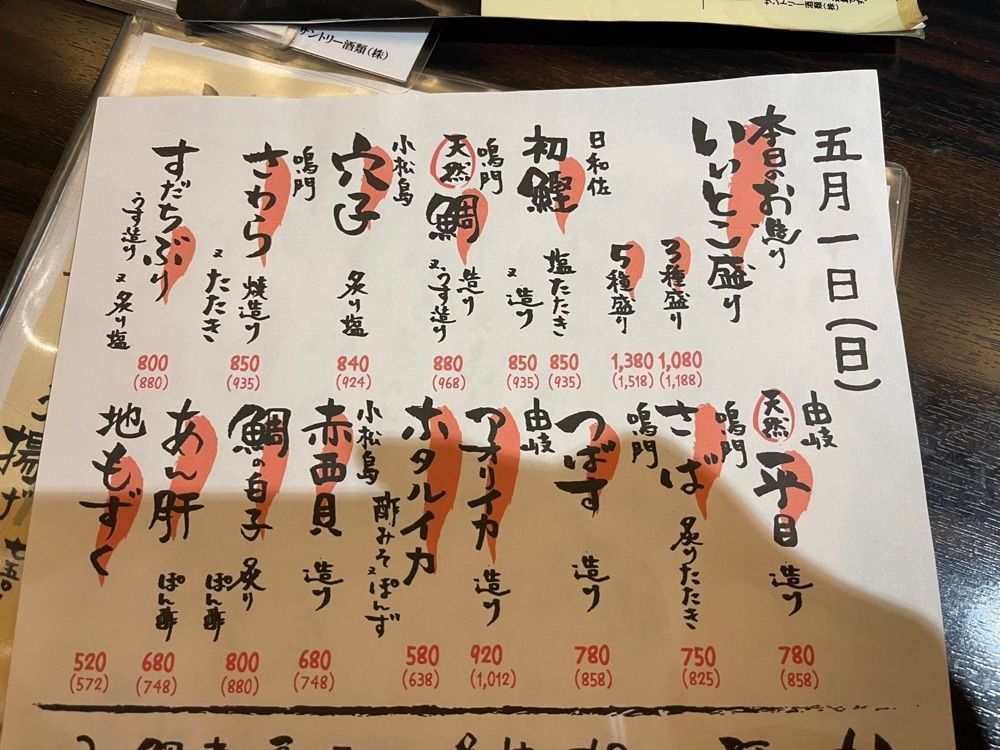 サントリー酒類(株)
サントリー酒類(株)
五月一日(日)
本日のお造り
いいとこ盛り
3種盛り
1,080
(1,188)
5種盛り
1,380
(1,518)
日和佐
初鰹
塩たたき
850
(935)
又造り
850
(935)
鳴門
天然
鯛
造り
又うす造り
880
(968)
小松島
穴子
炙り塩
840
(924)
鳴門
さわら
焼造り
又たたき
850
(935)
すだちぶり
うす造り
又炙り塩
800
(880)
由岐
天然
平目
造り
780
(858)
鳴門
さば
炙りたたき
750
(825)
鳴門
つばす
造り
780
(858)
由岐
アオリイカ
造り
920
(1,012)
ホタルイカ
酢みそ又ぽんず
580
(638)
小松島
赤西貝
造り
680
(748)
鯛の白子
炙り
ぽん酢
800
(880)
あん肝
ぽん酢
680
(748)
地もずく
520
(572)
揚げ
七五〇